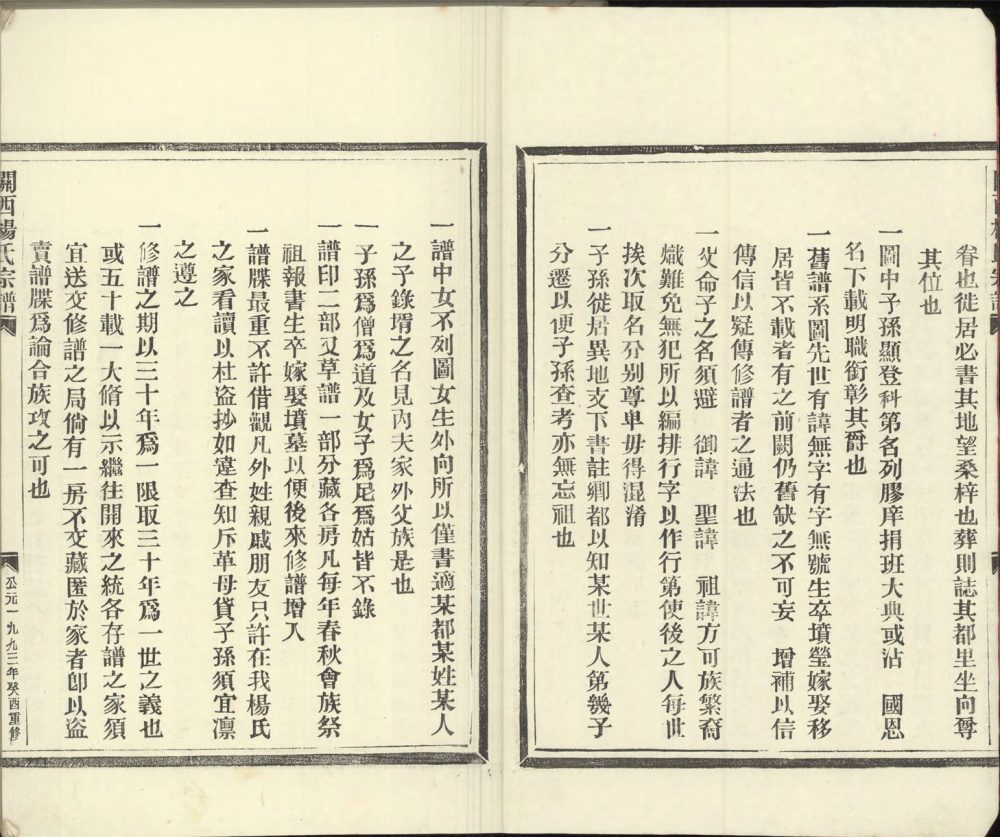 眷也徙居必書其地望桑梓也葬則誌其都里坐向尊
其位也
一圖中子孫顯登科第名列膠庠捐班大典或沾　國恩
名下載明職銜彰其爵也
一舊譜系圖先世有諱無字有字無號生卒墳瑩嫁娶移
居皆不載者有之前闕仍舊缺之不可妄　增補以信
傳信以疑傳修譜者之通法也
一父命子之名須避　御諱　聖諱　祖諱方可族繁裔
熾難免無犯所以編排行字以作行第使後之人每世
挨次取名分別尊卑毋得混淆
一子孫徙居異地支下書註鄉都以知某世某人第幾子
分遷以便子孫查考亦無忘祖也
一譜中女不列圖女生外向所以僅書適某都某姓某人
之子錄壻之名見內夫家外父族是也
一子孫爲僧爲道及女子爲尼爲姑皆不錄
一譜印二部又草譜一部分藏各房凡每年春秋會族祭
祖報書生卒嫁娶墳墓以便後來修譜增入
一譜牒最重不許借觀凡外姓親戚朋友只許在我楊氏
之家看讀以杜盜抄如違查知斥革毋貸子孫須宜凛
之遵之
一修譜之期以三十年爲一限取三十年爲一世之義也
或五十載一大脩以示繼往開來之統各存譜之家須
宜送交修譜之局倘有一房不交藏匿於家者卽以盜
賣譜牒爲論合族攻之可也
關西楊氏宗譜
公元一九九三年癸酉重修